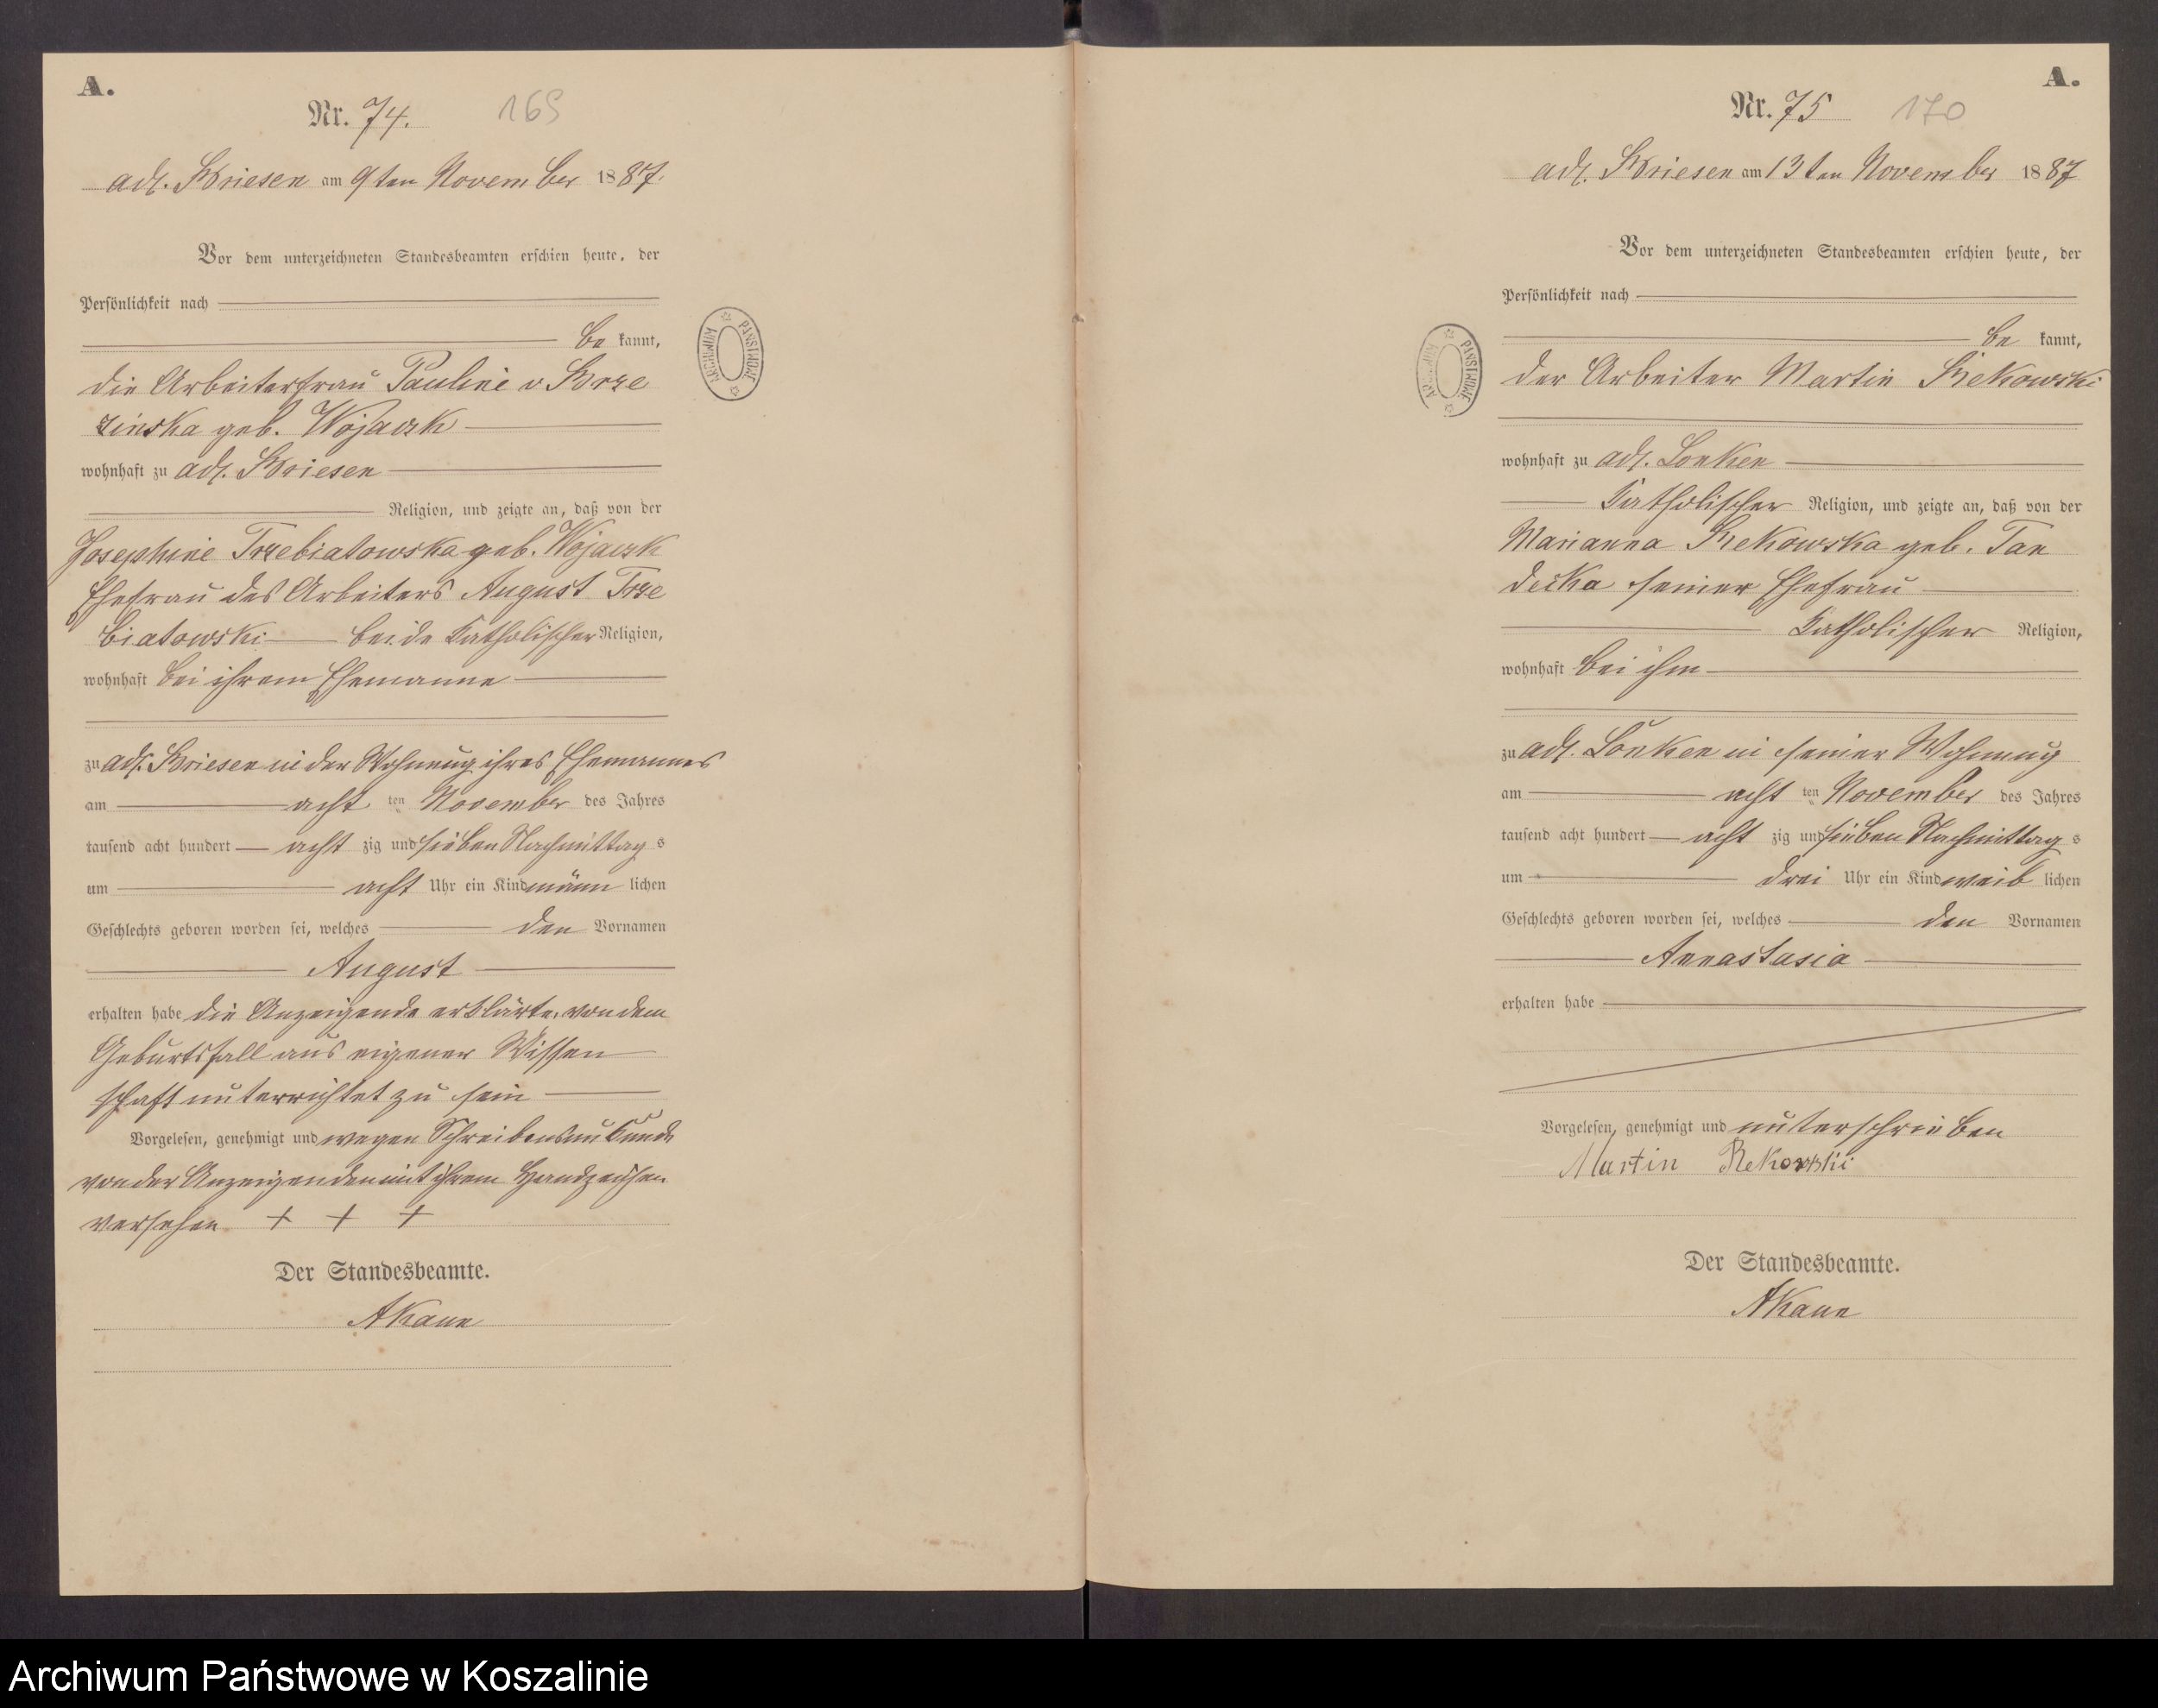 A.
Nr. 74. 169
adl. Briesen am 9ten November 1887.
Vor dem unterzeichneten Standesbeamten erschien heute, der
Persönlichkeit nach
be kannt,
die Arbeiterfrau Pauline v Brze
zinska geb. Wojaczk
wohnhaft zu adl. Briesen
Religion, und zeigte an, daß von der
Josephine Trzebiatowska geb. Wojaczk
Ehefrau des Arbeiters August Trze
biatowski beide Katholischer Religion,
wohnhaft bei ihrem Ehemanne
zu adl. Briesen in der Wohnung ihres Ehemannes
am acht ten November des Jahres
tausend acht hundert acht zig und sieben Nachmittag s
um acht Uhr ein Kind männ lichen
Geschlechts geboren worden sei, welches den Vornamen
August
erhalten habe die Anzeigende erklärte, von dem
Geburtsfall aus eigener Wissen
schaft unterrichtet zu sein
Vorgelesen, genehmigt und wegen Schreibensunkunde
von der Anzeigenden mit ihrem Handzeichen
versehen + + +
Der Standesbeamte.
AKaun
ARCHIWUM PAŃSTWOWE
A.
Nr. 75 170
adl. Briesen am 13ten November 1887
Vor dem unterzeichneten Standesbeamten erschien heute, der
Persönlichkeit nach
be kannt,
der Arbeiter Martin Rekowski
wohnhaft zu adl. Lonken
Katholischer Religion, und zeigte an, daß von der
Marianna Rekowska geb. Tan
decka seiner Ehefrau
Katholischer Religion,
wohnhaft bei ihm
zu adl. Lonken in seiner Wohnung
am acht ten November des Jahres
tausend acht hundert acht zig und sieben Nachmittag s
um drei Uhr ein Kind weib lichen
Geschlechts geboren worden sei, welches den Vornamen
Annastasia
erhalten habe
Vorgelesen, genehmigt und unterschrieben
Martin Rekowski
Der Standesbeamte.
AKaun
ARCHIWUM PAŃSTWOWE
Archiwum Państwowe w Koszalinie